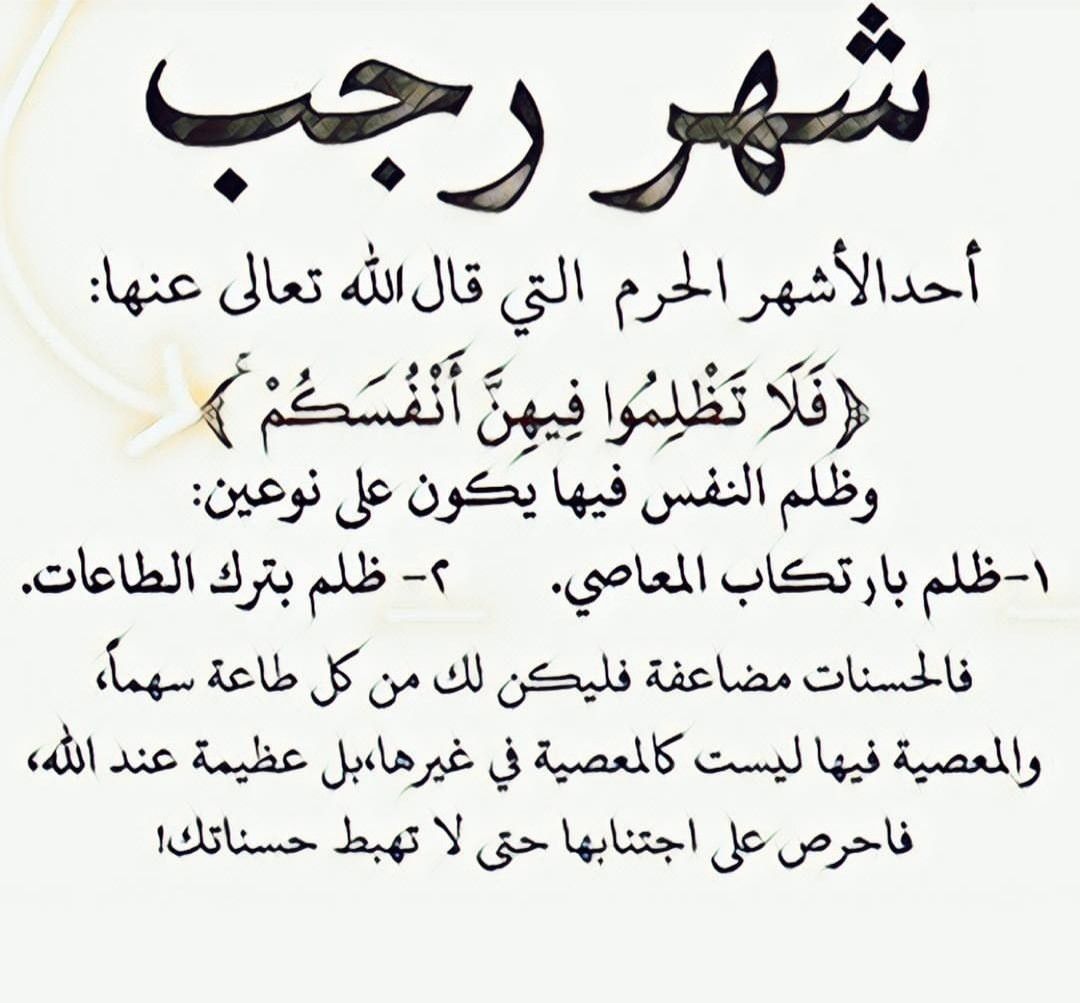 شهر رجب
أحدالأشهر الحرم التي قال الله تعالى عنها:
﴿فَلَا تَظْلِمُوا فِيهِنَّ أَنْفُسَكُمْ ۚ﴾
وظلم النفس فيها يكون على نوعين:
١-ظلم بارتكاب المعاصي. ٢- ظلم بترك الطاعات.
فالحسنات مضاعفة فليكن لك من كل طاعة سهماً،
والمعصية فيها ليست كالمعصية في غيرها،بل عظيمة عند الله،
فاحرص على اجتنابها حتى لا تهبط حسناتك!